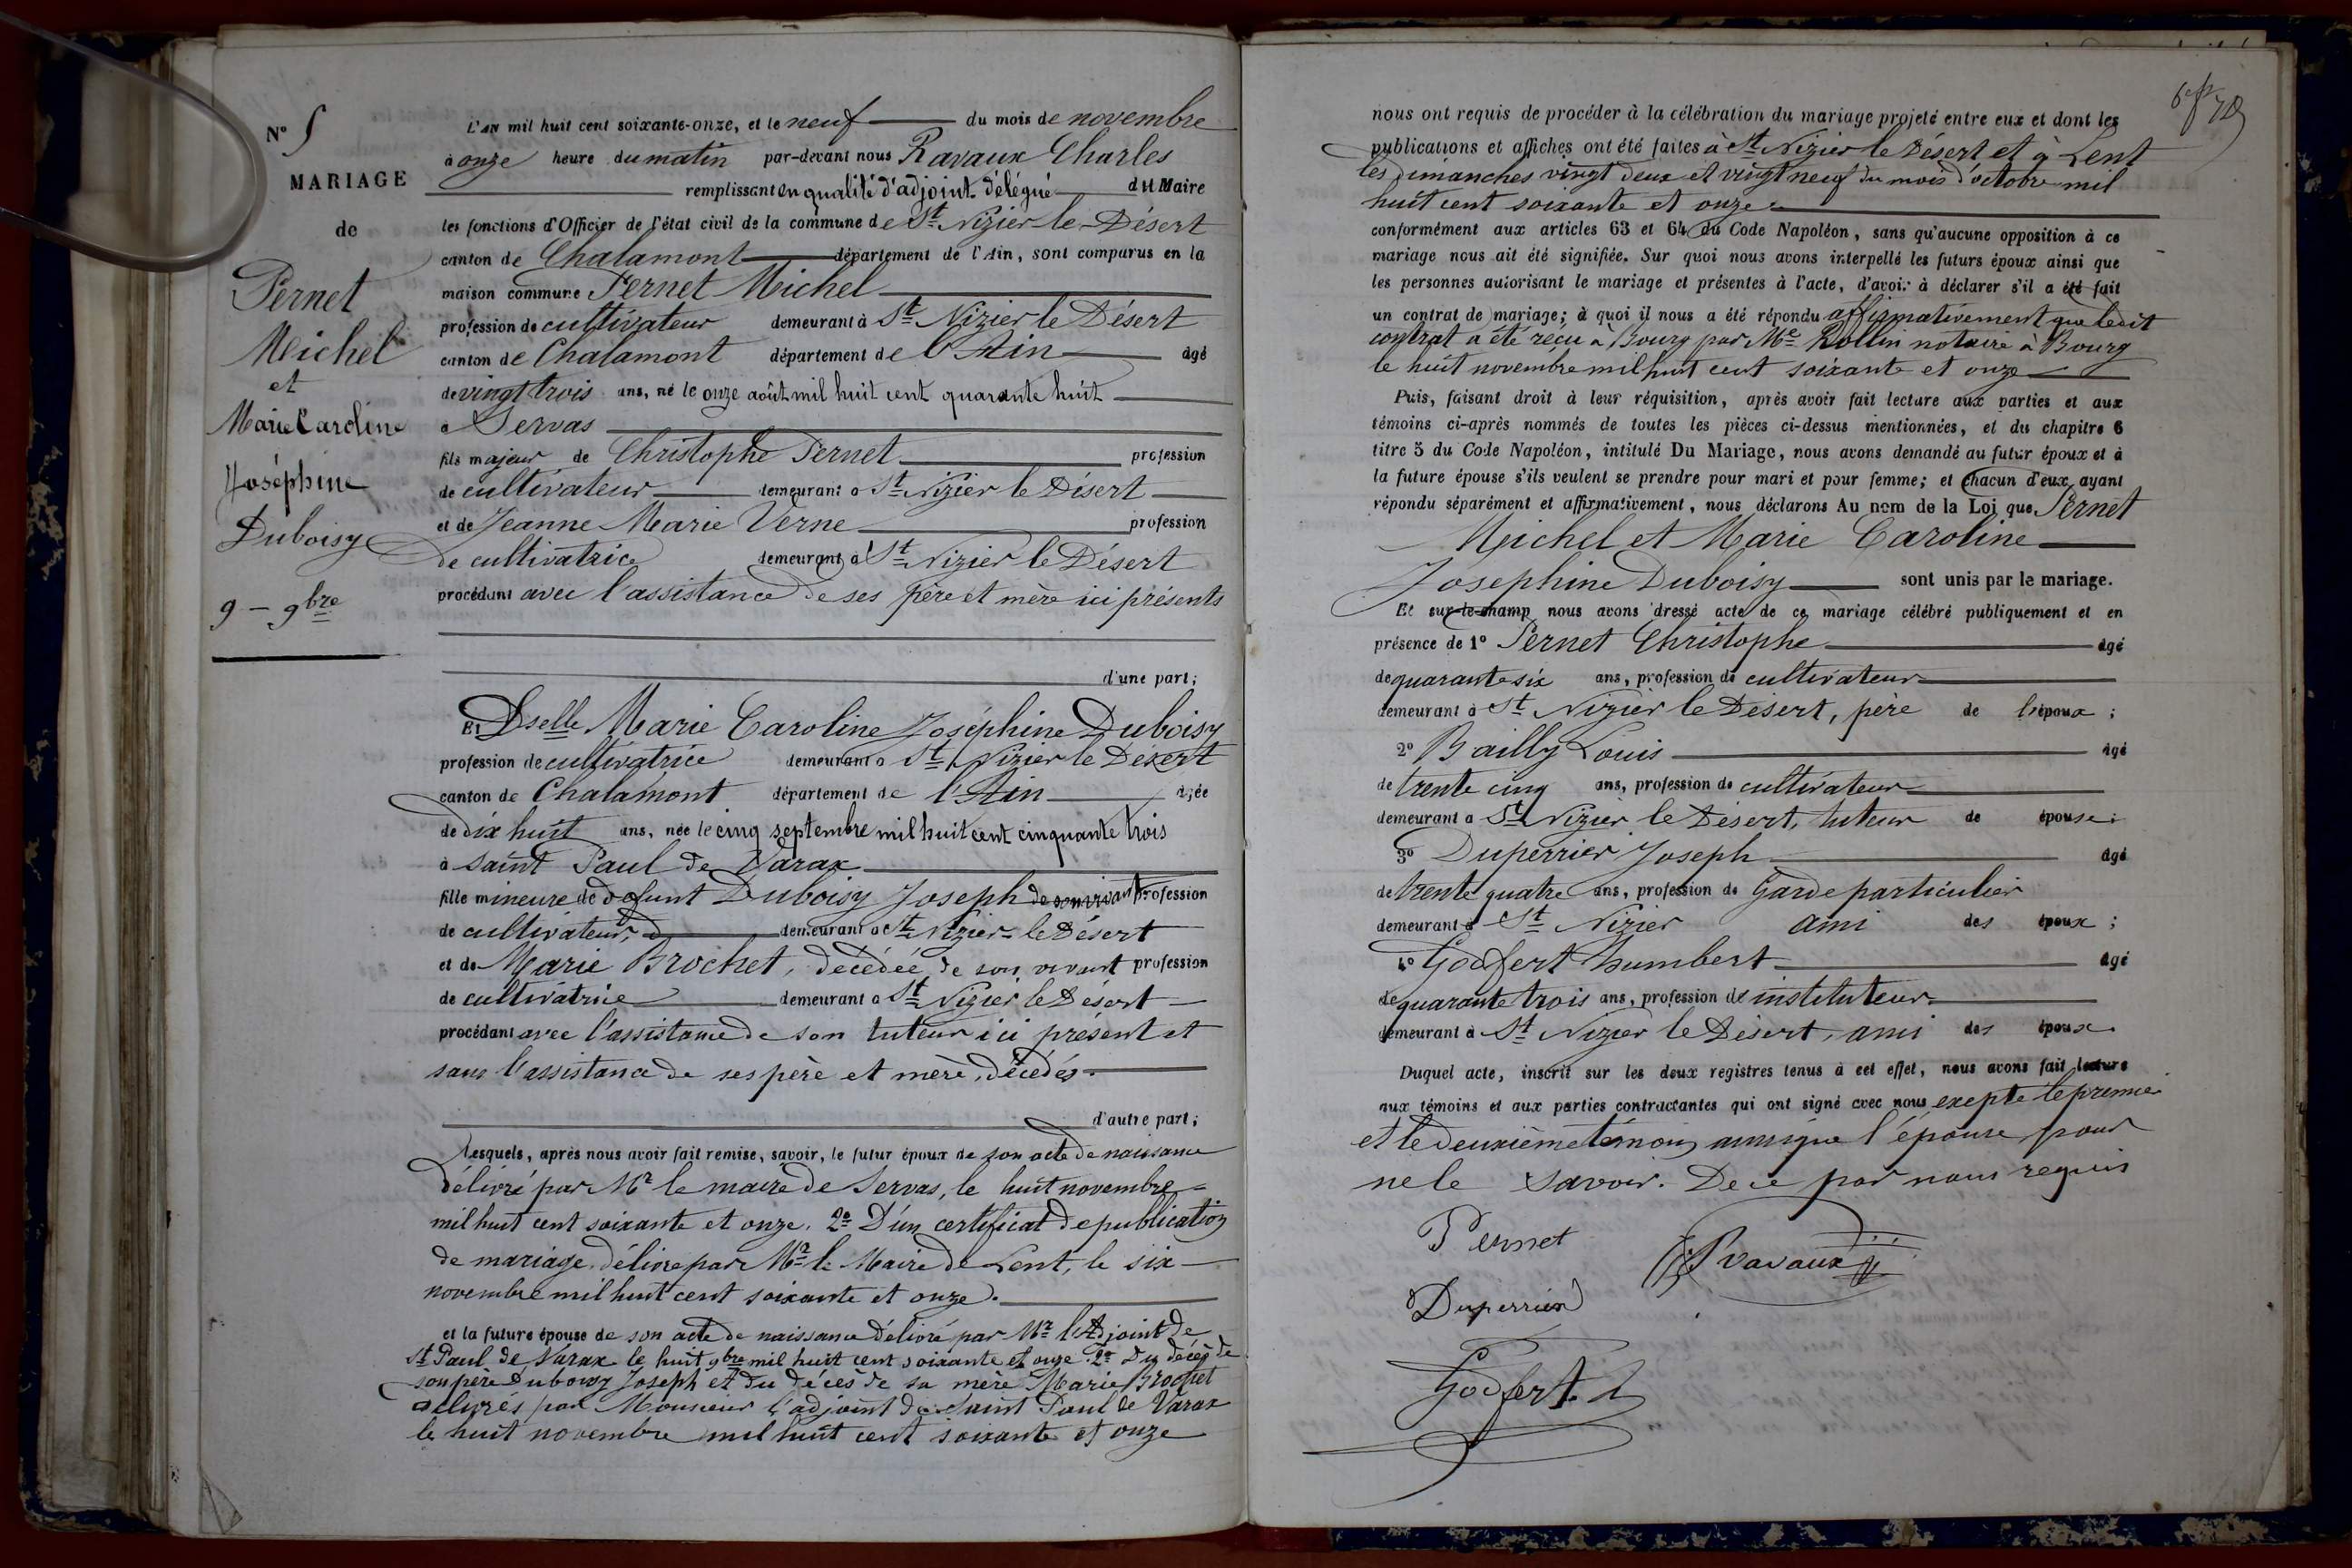 N° 5
MARIAGE
de
Pernet
Michel
et
Marie Caroline
Joséphine
Duboisy
9 - 9bre
L'AN mil huit cent soixante-onze, et le neuf du mois de novembre
à onze heure du matin par-devant nous Ravaux Charles
remplissant en qualité d'adjoint délégué du Maire
les fonctions d'Officier de l'état civil de la commune de St Nizier-le-Désert
canton de Chalamont département de l'Ain, sont comparus en la
maison commune Pernet Michel
profession de cultivateur demeurant à St Nizier le Désert
canton de Chalamont département de l'Ain âgé
de vingt trois ans, né le onze août mil huit cent quarante huit
à Servas
fils majeur de Christophe Pernet profession
de cultivateur demeurant à St Nizier le Désert
et de Jeanne Marie Verne profession
de cultivatrice demeurant à St Nizier le Désert
procédant avec l'assistance de ses père et mère ici présents
d'une part;
Et Dselle Marie Caroline Joséphine Duboisy
profession de cultivatrice demeurant à St Nizier le Désert
canton de Chalamont département de l'Ain âgée
de dix huit ans, née le cinq septembre mil huit cent cinquante trois
à Saint Paul de Varax
fille mineure de défunt Duboisy Joseph de son vivant profession
de cultivateur, demeurant à St Nizier-le Désert
et de Marie Brochet, décédée, de son vivant profession
de cultivatrice demeurant à St Nizier le Désert
procédant avec l'assistance de son tuteur ici présent et
sans l'assistance de ses père et mère, décédés.
d'autre part;
Lesquels, après nous avoir fait remise, savoir, le futur époux de son acte de naissance
délivré par Mr le maire de Servas, le huit novembre
mil huit cent soixante et onze. 2° D'un certificat de publication
de mariage délivré par Mr le Maire de Lent, le six
novembre mil huit cent soixante et onze.
et la future épouse de son acte de naissance délivré par Mr l'Adjoint de
St Paul de Varax le huit 9bre mil huit cent soixante et onze. 2° Du décès de
son père Duboisy Joseph et du décès de sa mère Marie Brochet
délivrés par Monsieur l'adjoint de Saint Paul de Varax
le huit novembre mil huit cent soixante et onze
nous ont requis de procéder à la célébration du mariage projeté entre eux et dont les
publications et affiches ont été faites à St Nizier le Désert et à Lent
les dimanches vingt deux et vingt neuf du mois d'octobre mil
huit cent soixante et onze
conformément aux articles 63 et 64 du Code Napoléon, sans qu'aucune opposition à ce
mariage nous ait été signifiée. Sur quoi nous avons interpellé les futurs époux ainsi que
les personnes autorisant le mariage et présentes à l'acte, d'avoir à déclarer s'il a été fait
un contrat de mariage; à quoi il nous a été répondu affirmativement que ledit
contrat a été reçu à Bourg par Me Rollin notaire à Bourg
le huit novembre mil huit cent soixante et onze
Puis, faisant droit à leur réquisition, après avoir fait lecture aux parties et aux
témoins ci-après nommés de toutes les pièces ci-dessus mentionnées, et du chapitre 6
titre 5 du Code Napoléon, intitulé Du Mariage, nous avons demandé au futur époux et à
la future épouse s'ils veulent se prendre pour mari et pour femme; et chacun d'eux ayant
répondu séparément et affirmativement, nous déclarons Au nom de la Loi que Pernet
Michel et Marie Caroline
Josephine Duboisy sont unis par le mariage.
Et sur-le-champ nous avons dressé acte de ce mariage célébré publiquement et en
présence de 1° Pernet Christophe âgé
de quarante six ans, profession de cultivateur
demeurant à St Nizier le Désert, père de l'époux;
2° Bailly Louis âgé
de trente cinq ans, profession de cultivateur
demeurant à St Nizier le Désert, tuteur de épouse;
3° Duperrier Joseph âgé
de trente quatre ans, profession de Garde particulier
demeurant à St Nizier ami des époux;
4° Godfert humbert âgé
de quarante trois ans, profession de instituteur
demeurant à St Nizier le Désert, ami des époux.
Duquel acte, inscrit sur les deux registres tenus à cet effet, nous avons fait lecture
aux témoins et aux parties contractantes qui ont signé avec nous excepte le premier
et le deuxième témoin ainsi que l'épouse pour
ne le savoir. De ce par nous requis
Pernet
Ravaux
Duperrier
Godfert